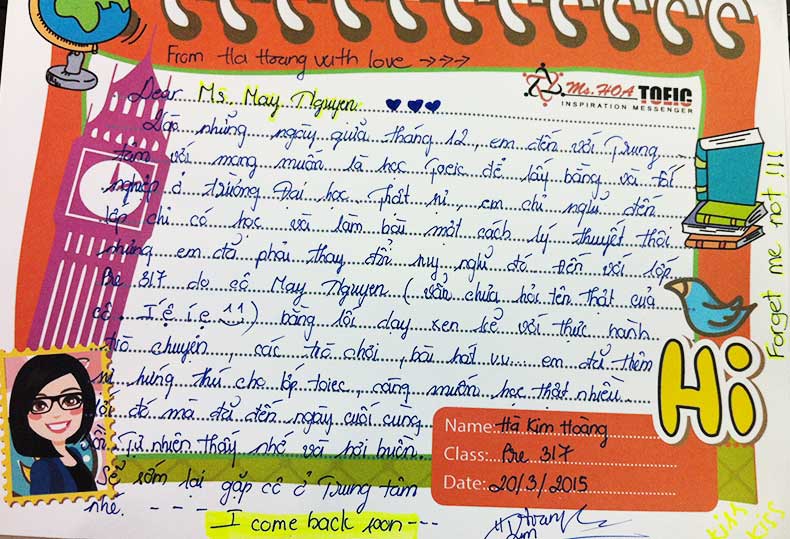 From Ha Hoang with love →→→
Dear Ms. May Nguyen
Ms. HOA TOEIC
INSPIRATION MESSENGER
Vào những ngày giữa tháng 12, em đến với Trung
tâm với mong muốn là học Toeic để lấy bằng và tốt
nghiệp ở trường Đại học. Thật sự, em chỉ nghĩ đến
lớp chỉ có học và làm bài một cách lý thuyết thôi
nhưng em đã phải thay đổi suy nghĩ đó đến với lớp
Pre 317 do cô May Nguyen (vẫn chưa hỏi tên thật của
cô. í.ẹ í.ẹ) bằng lối dạy xen kẽ với thực hành
trò chuyện, các trò chơi, bài hát v.v... em đã thêm
hứng thú cho lớp toiec, càng muốn học thật nhiều
đó mà đã đến ngày cuối cùng
Tự nhiên thấy nhớ và hơi buồn.
Sẽ sớm lại gặp cô ở Trung tâm
nhé.
I come back soon
Name: Hà Kim Hoàng
Class: Pre 317
Date: 20/3/2015
Hi
Forget me not!!!
kiss
kiss